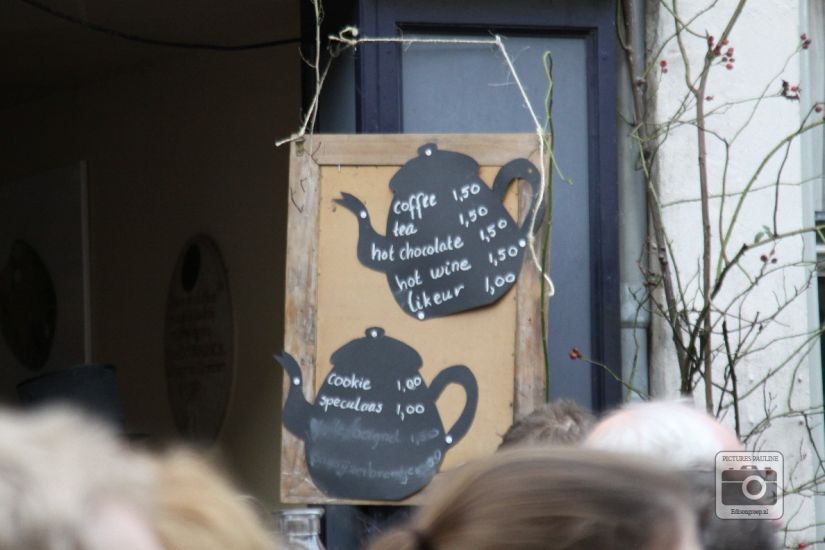 coffee 1,50
tea 1,50
hot chocolate 1,50
hot wine 1,50
likeur 1,00
Cookie 1,00
speculaas 1,00
beignet 1,50
PICTURES PAULINE
Edisongroep.nl